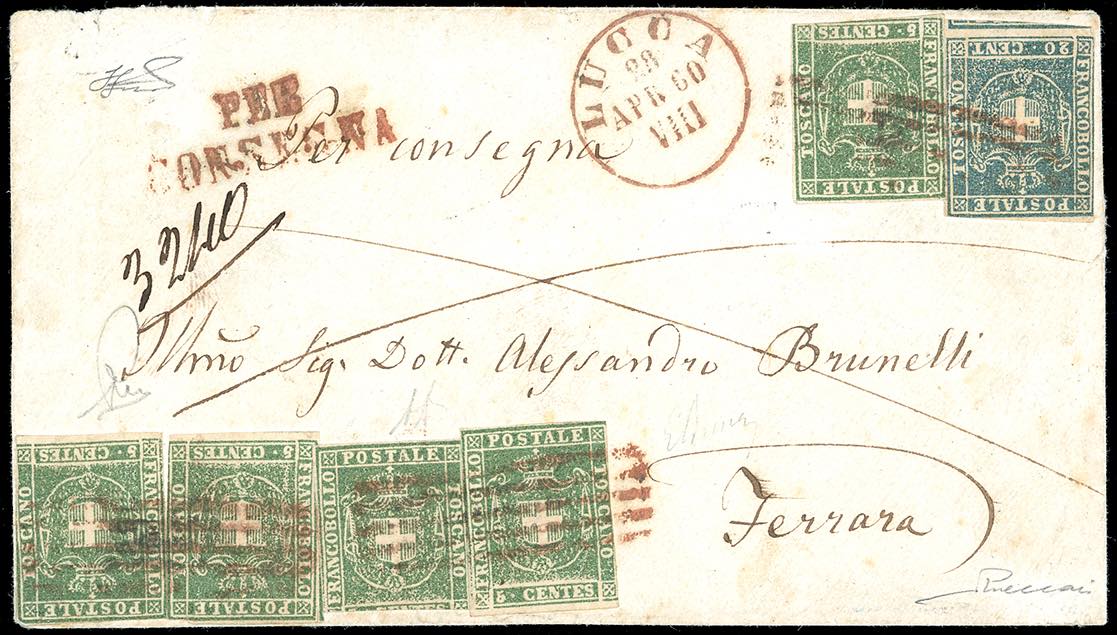 PER
CONSEGNA
Per consegna
LUCCA
28
APR 60
VIII
5 CENTES
FRANCOBOLLO
TOSCANO
POSTALE
20 CENT
FRANCOBOLLO
TOSCANO
POSTALE
3240
Illmo Sig. Dott. Alessandro Brunelli
Ferrara
5 CENTES
FRANCOBOLLO
TOSCANO
POSTALE
5 CENTES
FRANCOBOLLO
TOSCANO
POSTALE
POSTALE
FRANCOBOLLO
TOSCANO
CENTES
POSTALE
FRANCOBOLLO
TOSCANO
5 CENTES